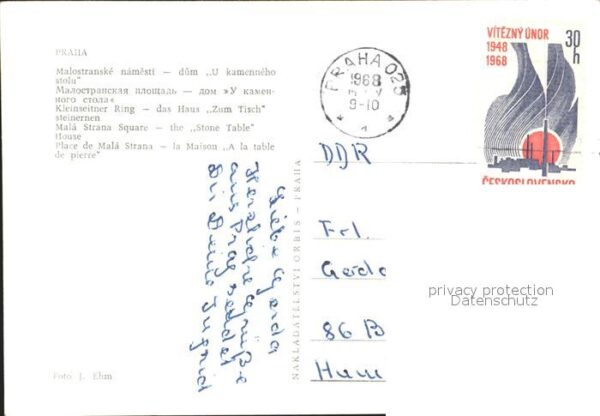 PRAHA
Malostranské náměstí — dům „U kamenného
stolu"
Малостранская площадь — дом »У камен-
ного стола«
Kleinseitner Ring — das Haus „Zum Tisch"
steinernen
Malá Strana Square — the „Stone Table"
House
Place de Malá Strana — la Maison „A la table
de pierre"
Foto J. Ehm
Liebe Gerda
Herzliche Grüße
aus Prag sendet
Dir Deine Ingrid
NAKLADATELSTVÍ ORBIS - PRAHA
PRAHA 025
1968
V
9-10
VÍTĚZNÝ ÚNOR
1948
1968
30
h
ČESKOSLOVENSKO
DDR
Frl.
86 B
privacy protection
Datenschutz